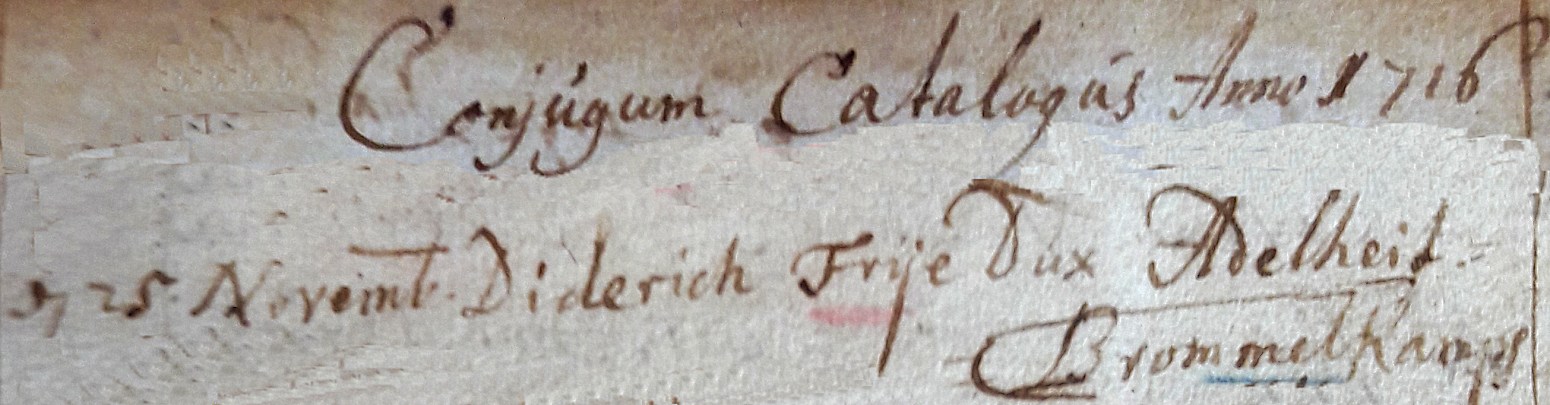 Conjúgum Catalogús Anno 1716
25. Novemb. Diderich Frije Dux Adelheit
Brommelkamps